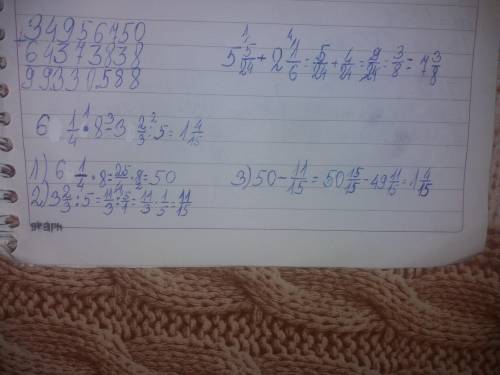 34956750
+
64373838
99330588
5 5/24 + 2 1/6 = 5/24 + 4/24 = 9/24 = 3/8 = 7 3/8
6 1/4 · 8 - 3 2/3 : 5 = 1 4/15
1) 6 1/4 · 8 = 25/4 · 8/2 = 50
2) 3 2/3 : 5 = 11/3 : 5/1 = 11/3 · 1/5 = 11/15
3) 50 - 11/15 = 50 15/15 - 49 11/15 = 1 4/15